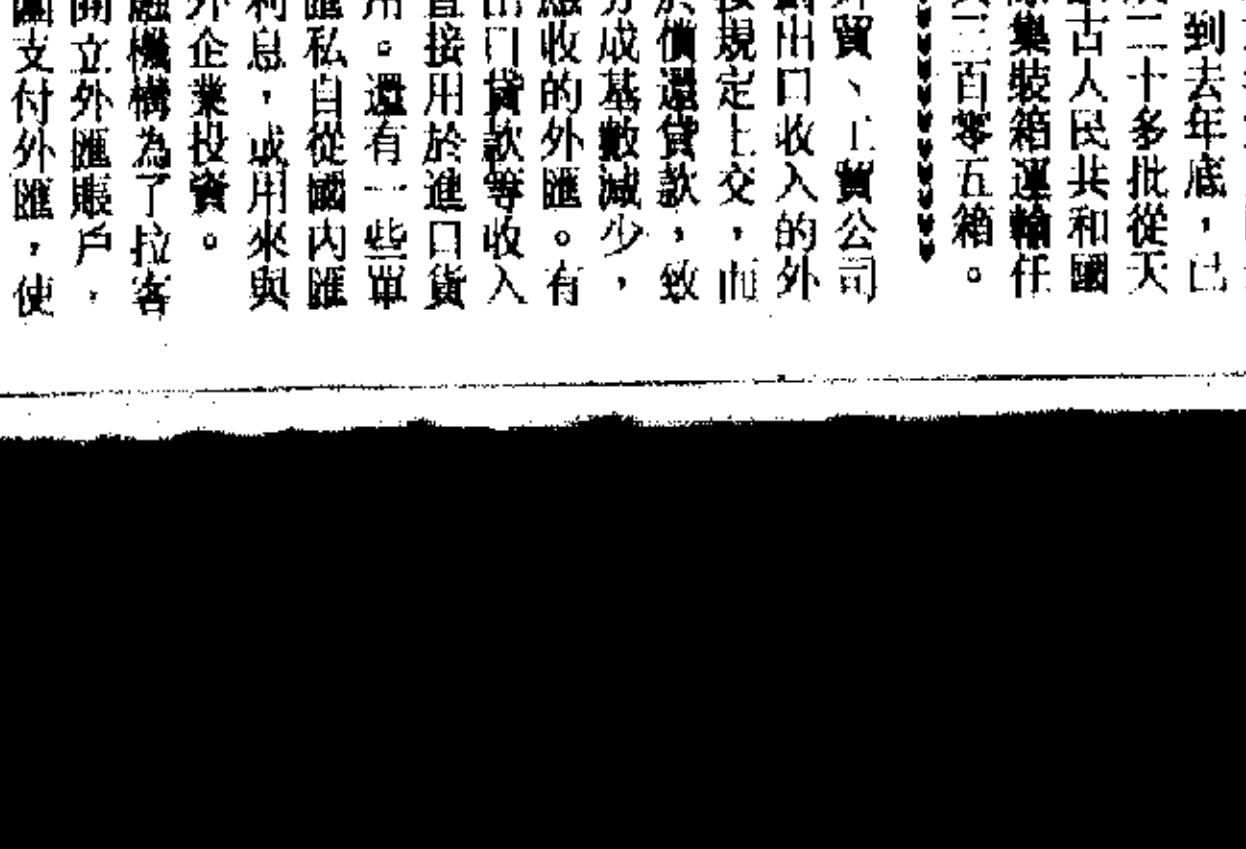 到去年底，已
二十多批從天
古人民共和國
集裝箱運輸任
三百零五箱。
貿、工貿公司
出口收入的外
規定上交，而
償還貸款，致
成基數減少，
收的外匯。有
口貸款等收入
接用於進口貨
。還有一些單
私自從國內匯
息，或用來與
企業投資。
機構為了拉客
立外匯賬戶，
支付外匯，使